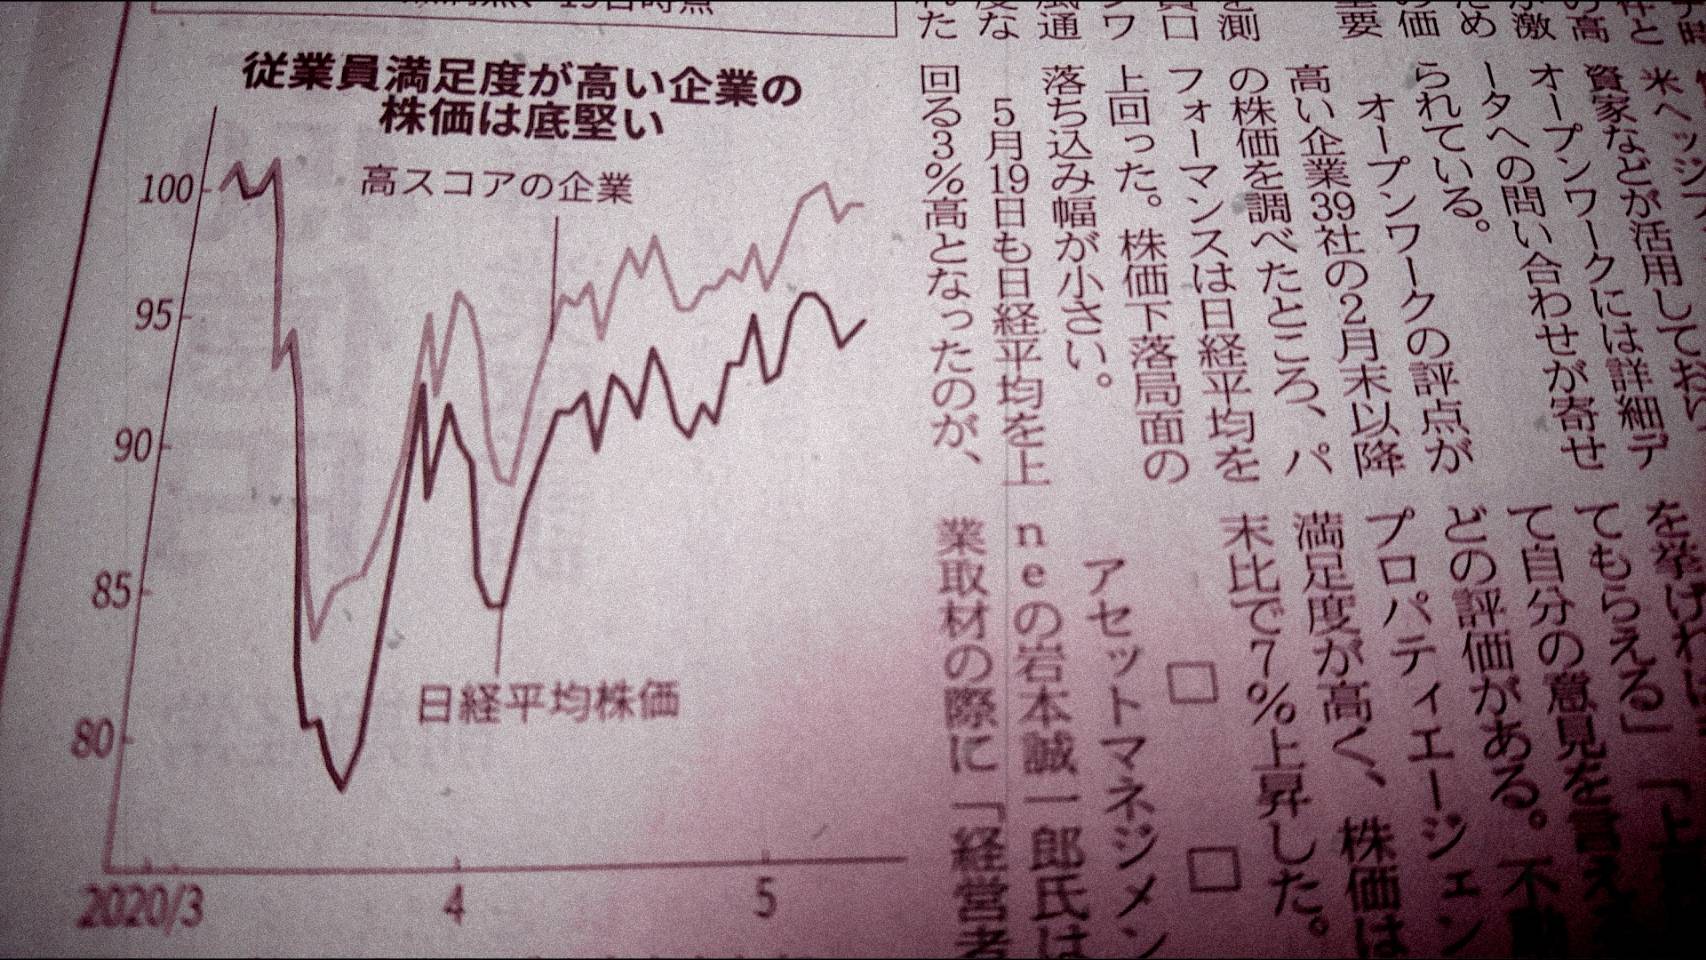 19日時点
従業員満足度が高い企業の
株価は底堅い
高スコアの企業
日経平均株価
100
95
90
85
80
2020/3
4
5
の高
激
ため
の価
重要
を測
員口
ンワ
風通
度な
れた
米ヘッジフ
資家などが活用しており
オープンワークには詳細デ
ータへの問い合わせが寄せ
られている。
オープンワークの評点が
高い企業39社の2月末以降
の株価を調べたところ、パ
フォーマンスは日経平均を
上回った。株価下落局面の
落ち込み幅が小さい。
5月19日も日経平均を上
回る3%高となったのが、
を挙げれば
てもらえる」「上
て自分の意見を言える
どの評価がある。不動
プロパティエージェン
満足度が高く、株価は
末比で7%上昇した。
□ □
アセットマネジメン
neの岩本誠一郎氏は
業取材の際に「経営者